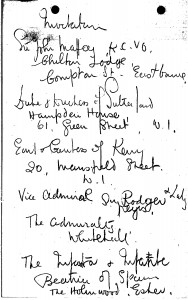 Invitation
Sir John Maffey K.C.V.O.,
Chilton Lodge
Compton St. Eastbourne
Duke & Duchess of Sutherland
Hampden House
61, Green Street W.1.
Earl & Countess of Kerry
20, Mansfield Street.
W.1.
Vice Admiral Sir Roger & Lady
Keyes
The Admiralty
Whitehall
The Infanta & Infante
Beatrice of Spain
The Holmwood Esher.